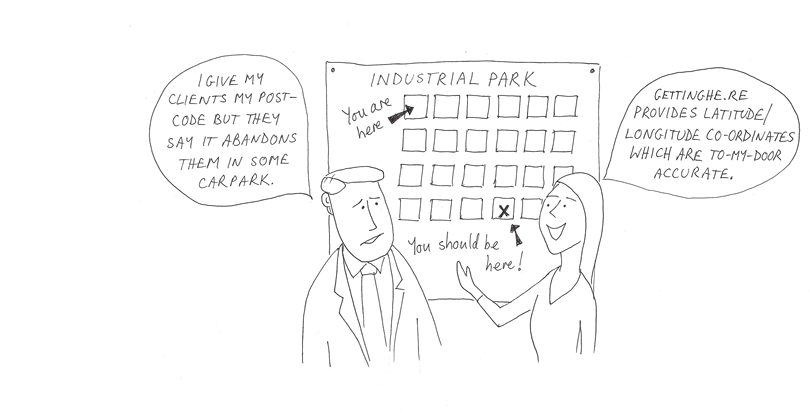 I GIVE MY
CLIENTS MY POST-
CODE BUT THEY
SAY IT ABANDONS
THEM IN SOME
CARPARK.
INDUSTRIAL PARK
You are
here
X
You should be
here!
GETTINGHE.RE
PROVIDES LATITUDE/
LONGITUDE CO-ORDINATES
WHICH ARE TO-MY-DOOR
ACCURATE.